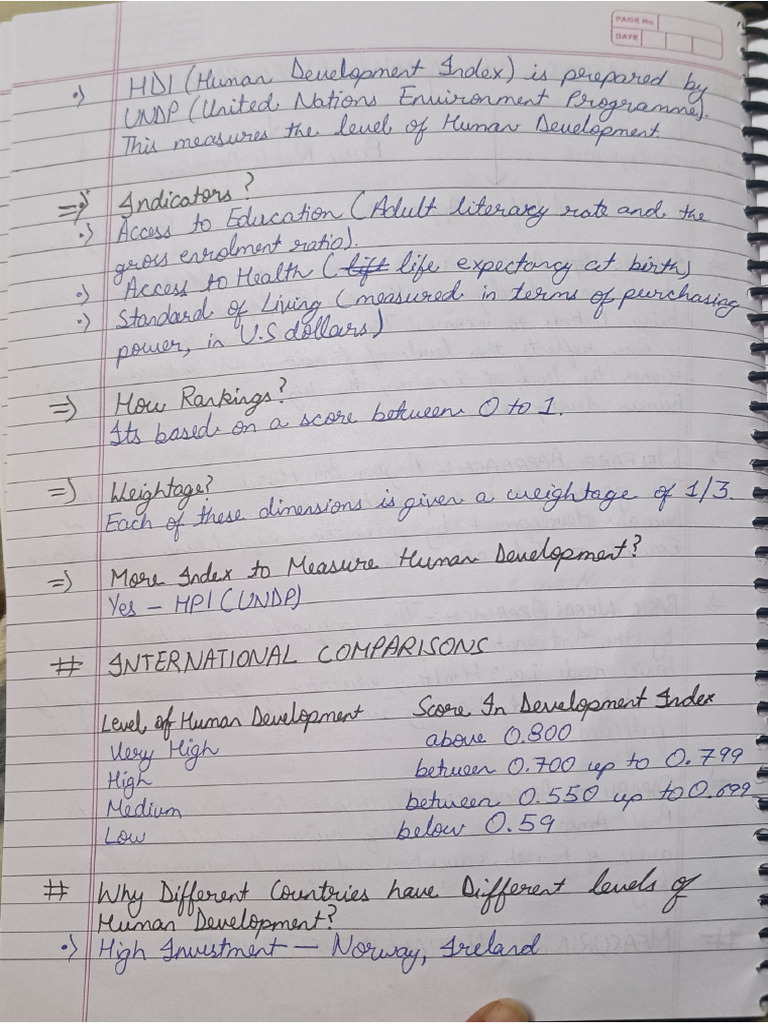 PAGE No.
DATE
•) HDI (Human Development Index) is prepared by
UNDP (United Nations Environment Programme).
This measures the level of Human Development.
=) Indicators?
•) Access to Education (Adult literary rate and the
gross enrolment ratio).
•) Access to Health (lift life expectancy at birth)
•) Standard of Living (measured in terms of purchasing
power, in U.S dollars)
=) How Rankings?
Its based on a score between 0 to 1.
=) Weightage?
Each of these dimensions is given a weightage of 1/3.
=) More Index to Measure Human Development?
Yes - HPI (UNDP)
# INTERNATIONAL COMPARISONS
Level of Human Development Score In Development Index
Very High above 0.800
High between 0.700 up to 0.799
Medium between 0.550 up to 0.699
Low below 0.59
# Why Different Countries have Different levels of
Human Development?
•) High Investment — Norway, Ireland